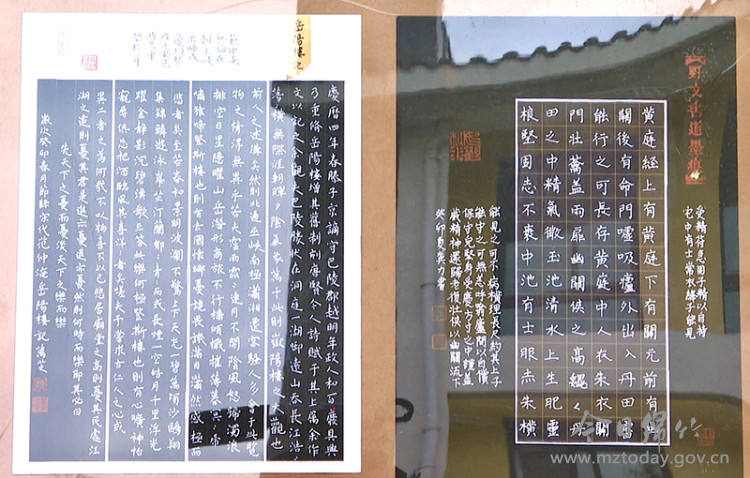 岳陽樓記
慶曆四年春滕子京謫守巴陵郡越明年政人和百廢具興
乃重修岳陽樓增其舊制刻唐賢今人詩賦于其上屬余作
文以記之余觀夫巴陵勝狀在洞庭一湖銜遠山吞長江浩
湯橫無際涯朝暉夕陰氣象萬千此則岳陽樓之大觀也
前人之述備矣然則北通巫峽南極瀟湘遷客騷人多會于此覽
物之情得無異乎若夫霪雨霏霏連月不開陰風怒號濁浪
排空日星隱曜山岳潛形商旅不行檣傾楫摧薄暮冥冥虎
嘯猿啼登斯樓也則有去國懷鄉憂讒畏譏滿目蕭然感極而
悲者矣至若春和景明波瀾不驚上下天光一碧萬頃沙鷗翔
集錦鱗游泳岸芷汀蘭郁郁青青而或長煙一空皓月千里浮光
躍金靜影沉璧漁歌互答此樂何極登斯樓也則有心曠神怡
寵辱偕忘把酒臨風其喜洋洋者矣嗟夫予嘗求古仁人之心或
異二者之為何哉不以物喜不以己悲居廟堂之高則憂其民處江
湖之遠則憂其君是進亦憂退亦憂然則何時而樂耶其必曰
先天下之憂而憂後天下之樂而樂
歲次癸卯春月錄宋代范仲淹岳陽樓記萬文
黃庭經上有黃庭下有關元前有幽
闕後有命門噓吸廬外出入丹田審
能行之可長存黃庭中人衣朱衣關
門壯籥蓋兩扉幽闕俠之高巍々丹
田之中精氣微玉池清水上生肥靈
根堅固志不衰中池有士服赤朱橫
受精符急固子精以自持
宅中有士常衣絳子能見
能見之可不病橫理長尺約其上子
能守之可無恙呼翕廬間以自償
保守完堅身受慶方寸之中謹蓋
藏精神還歸老復壯俠以幽闕流下
癸卯夏
今日绵竹
www.mztoday.gov.cn